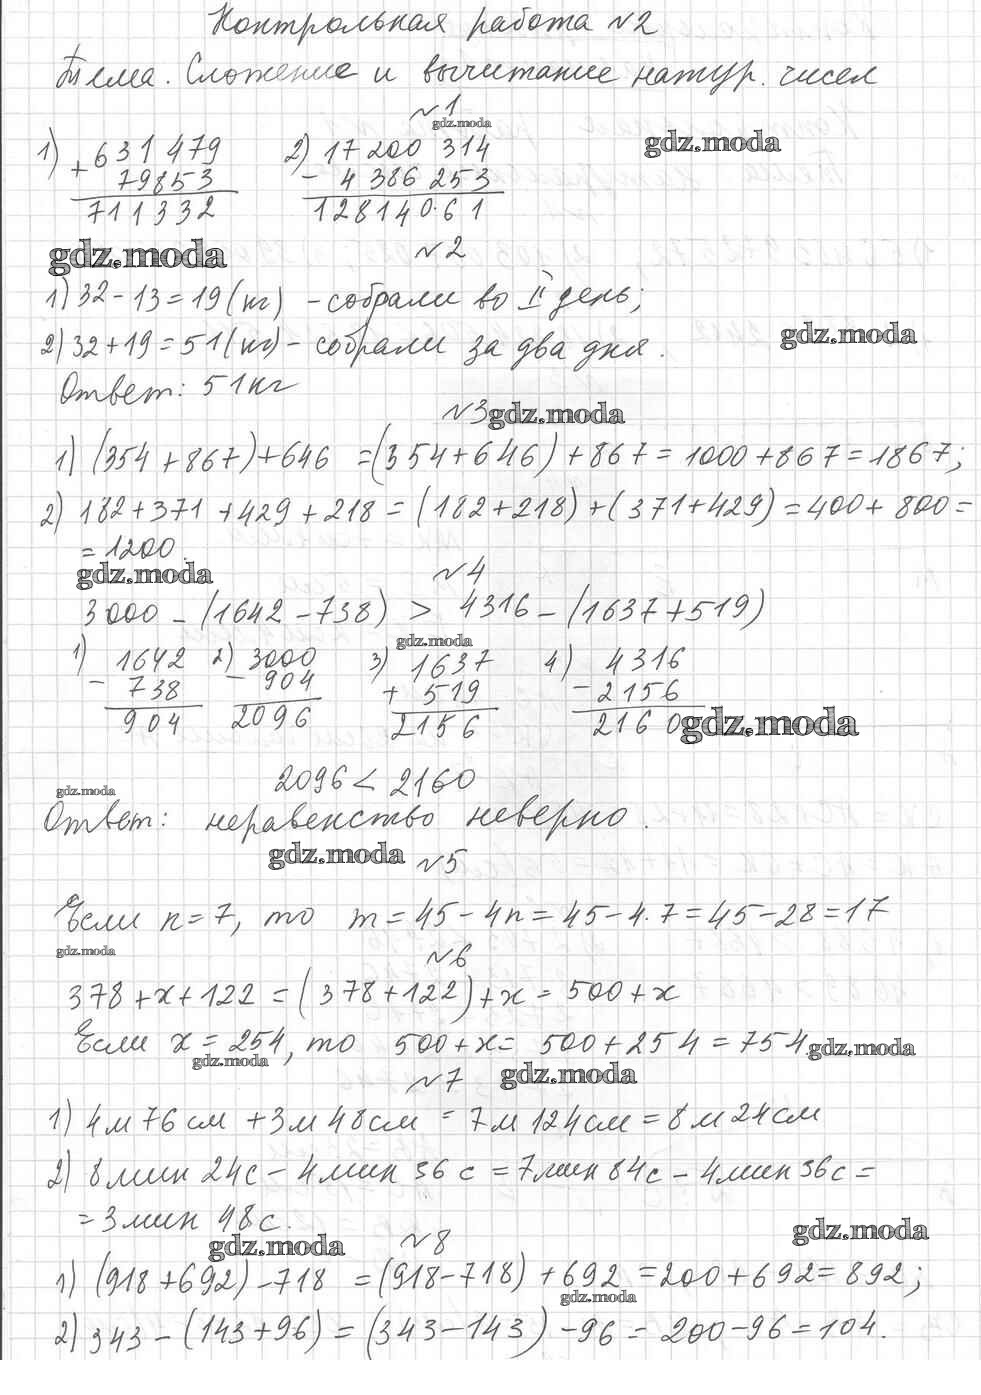 Контрольная работа №2
Тема. Сложение и вычитание натур. чисел
№1
gdz.moda
1) + 631 479
79853
711332
2) 17 200 314
- 4 386 253
12814061
gdz.moda
gdz.moda
№2
1) 32 - 13 = 19 (кг) - собрали во II день;
gdz.moda
2) 32 + 19 = 51 (кг) - собрали за два дня.
Ответ: 51 кг
№3 gdz.moda
1) (354 + 867) + 646 = (354 + 646) + 867 = 1000 + 867 = 1867;
2) 182 + 371 + 429 + 218 = (182 + 218) + (371 + 429) = 400 + 800 =
= 1200.
gdz.moda
№4
3000 - (1642 - 738) > 4316 - (1637 + 519)
gdz.moda
1) 1642
- 738
904
2) 3000
- 904
2096
3) 1637
+ 519
2156
4) 4316
- 2156
2160
gdz.moda
2096 < 2160
gdz.moda
Ответ: неравенство неверно.
gdz.moda №5
Если n = 7, то m = 45 - 4n = 45 - 4·7 = 45 - 28 = 17
gdz.moda
№6
378 + x + 122 = (378 + 122) + x = 500 + x
Если x = 254, то 500 + x = 500 + 254 = 754. gdz.moda
gdz.moda
№7 gdz.moda
1) 4 м 76 см + 3 м 48 см = 7 м 124 см = 8 м 24 см
2) 8 мин 24 с - 4 мин 36 с = 7 мин 84 с - 4 мин 36 с =
= 3 мин 48 с.
gdz.moda
gdz.moda
№8
1) (918 + 692) - 718 = (918 - 718) + 692 = 200 + 692 = 892;
gdz.moda
2) 343 - (143 + 96) = (343 - 143) - 96 = 200 - 96 = 104.